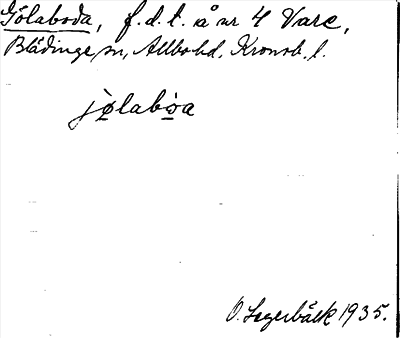 Gölaboda, f.d.t. å nr 4 Vare,
Blädinge sn, Allbo hd, Kronob. l.
jø̀labò̱a
O. Lagerbäck 1935.